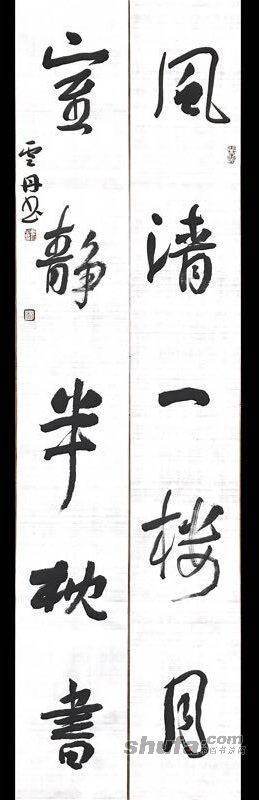 風清一樓月
室靜半枕書
雲丹书
shufa.com